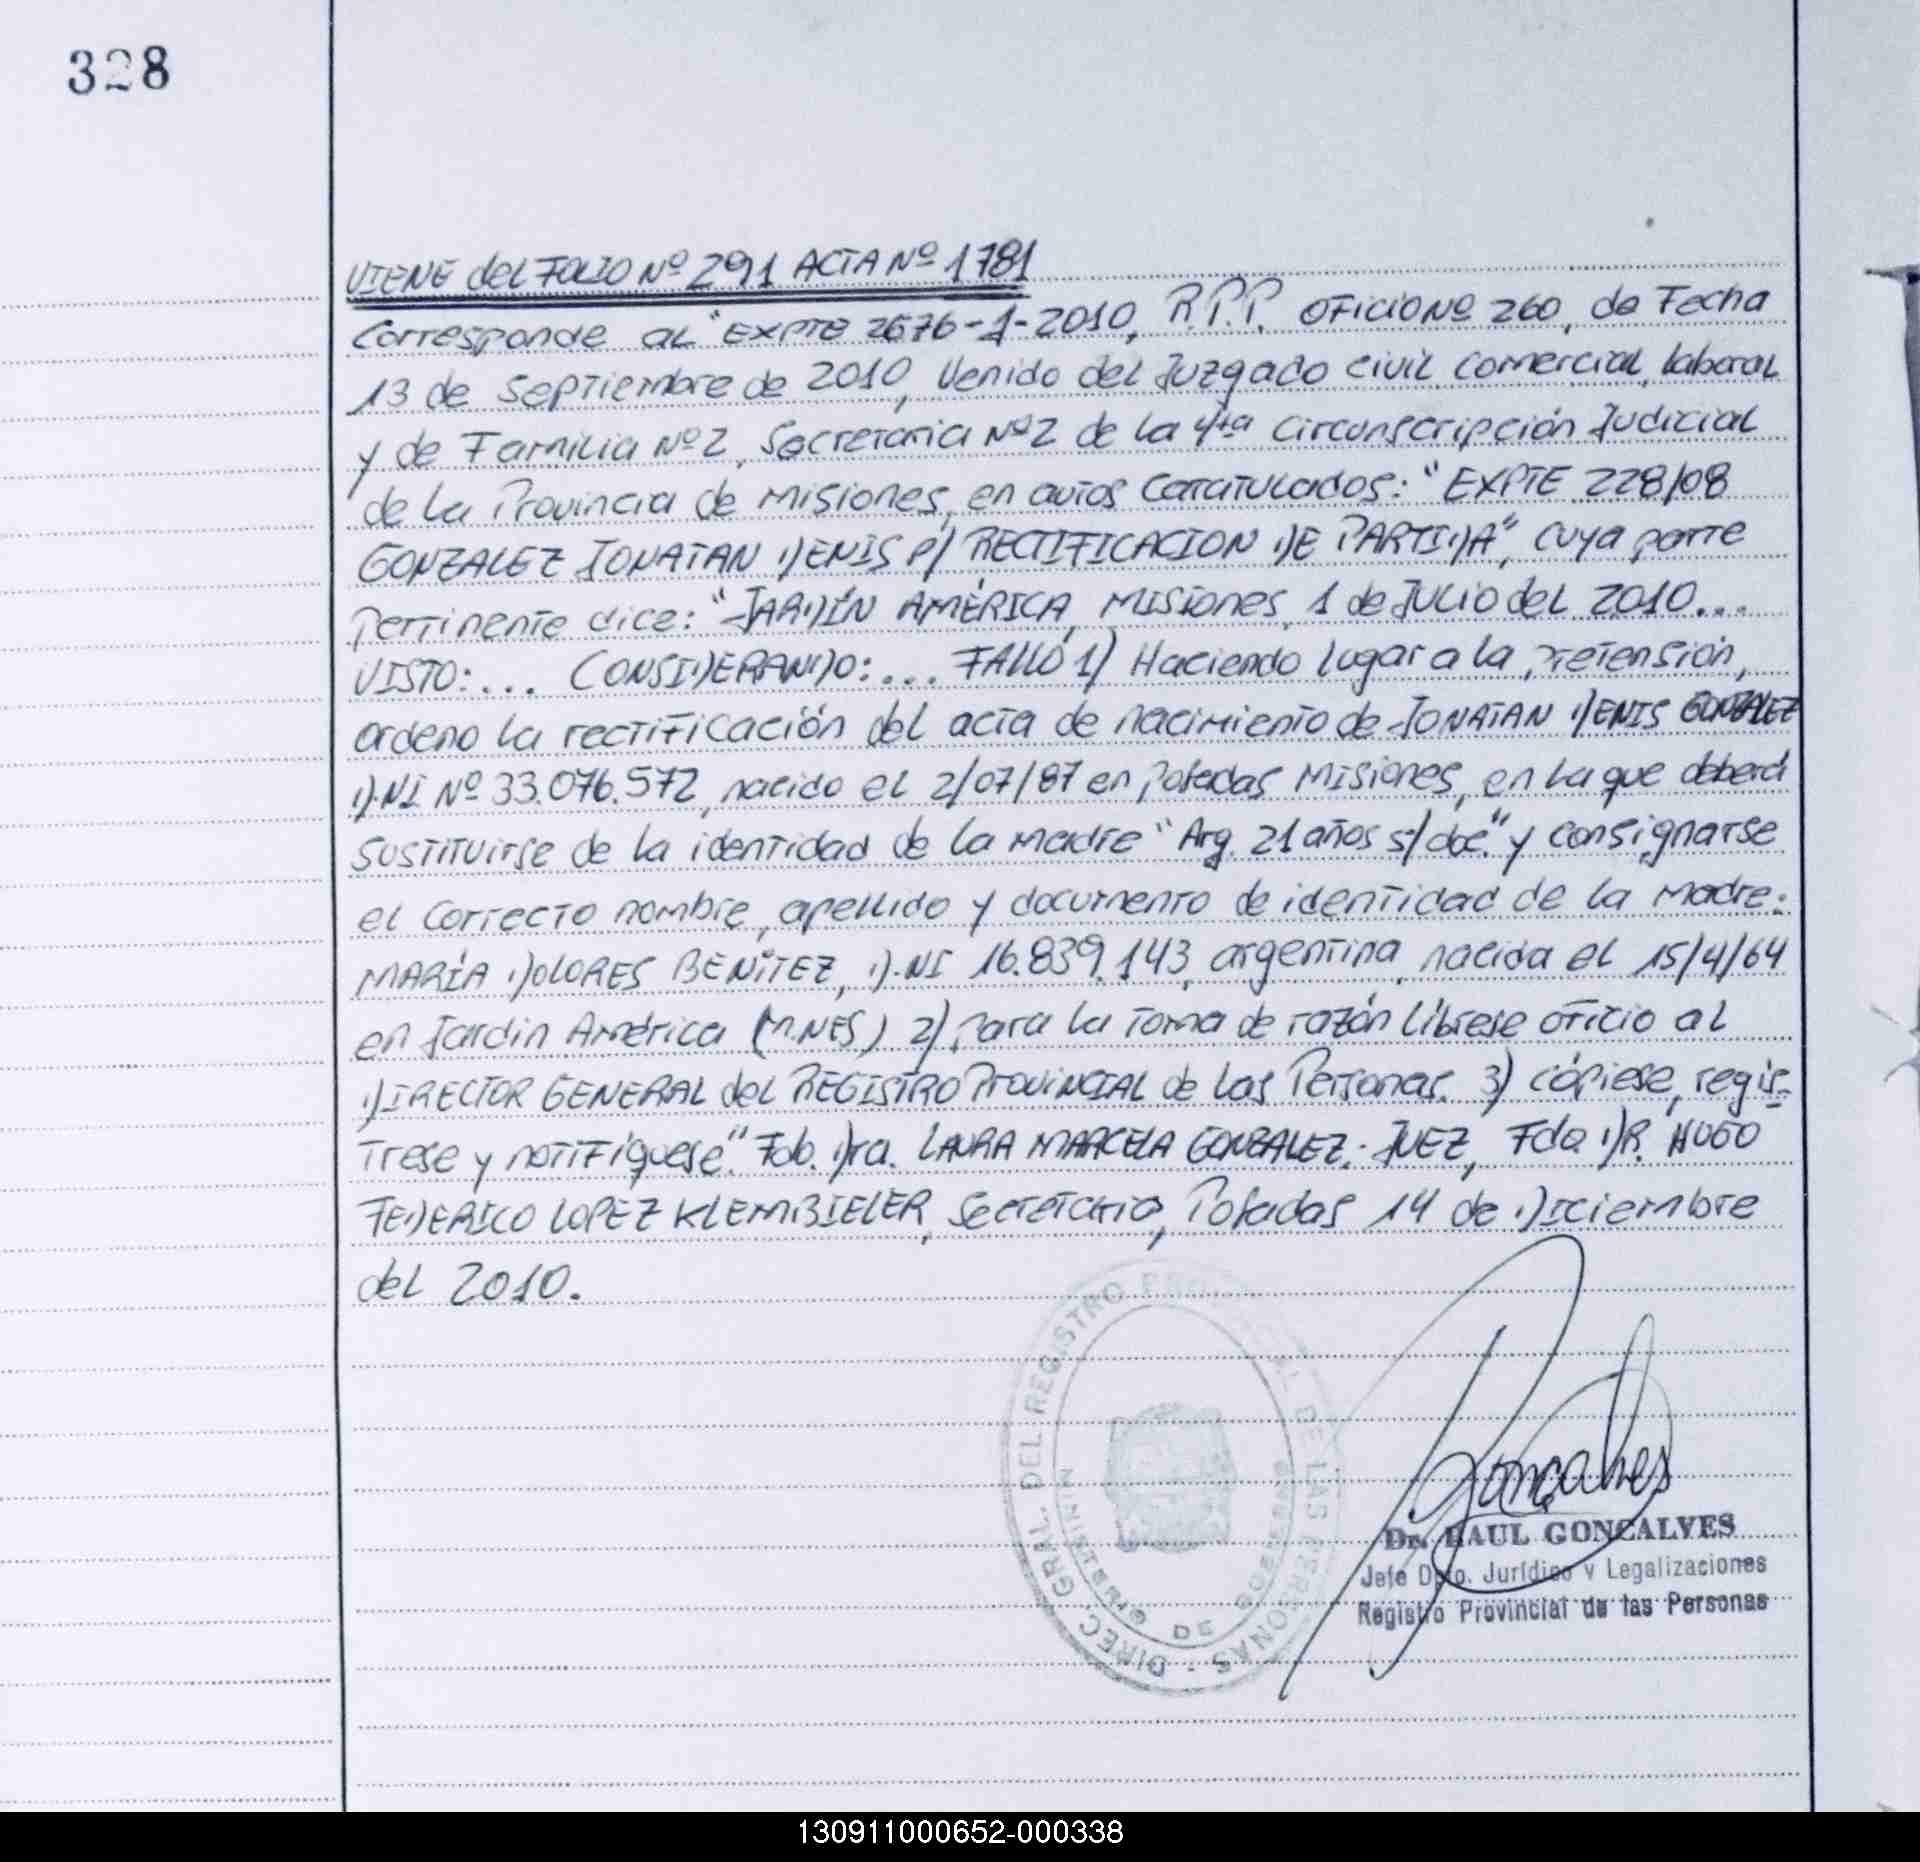 328
VIENE del FOLIO Nº 291 ACTA Nº 1781
Corresponde al "EXPTE 2676-1-2010, R.P.P. OFICIO Nº 260, de Fecha
13 de septiembre de 2010, Venido del Juzgado civil, comercial, laboral
y de Familia Nº2, Secretaria Nº2 de la 4ta circunscripción Judicial
de la Provincia de Misiones, en autos caratulados: "EXPTE 228/08
GONZALEZ JONATAN DENIS P/ RECTIFICACION DE PARTIDA", cuya parte
Pertinente dice: "JARDÍN AMÉRICA, Misiones, 1 de Julio del 2010...
VISTO:... CONSIDERANDO:... FALLO 1) Haciendo lugar a la pretensión,
ordeno la rectificación del acta de nacimiento de JONATAN DENIS GONZALEZ
D.NI Nº 33.076.572, nacido el 2/07/87 en Posadas Misiones, en la que deberá
sustituirse de la identidad de la madre "Arg. 21 años s/doc." y consignarse
el correcto nombre, apellido y documento de identidad de la madre:
MARÍA DOLORES BENÍTEZ, D.NI 16.839.143, argentina, nacida el 15/4/64
en Jardin América (M.NES) 2) Para la toma de razón líbrese oficio al
DIRECTOR GENERAL del REGISTRO PROVINCIAL de las Personas. 3) cópiese, regís-
trese y notifíquese." Fdo. Dra. LAURA MARCELA GONZALEZ. JUEZ, Fdo. DR. HUGO
FEDERICO LOPEZ KLEMBIELER, Secretario, Posadas 14 de Diciembre
del 2010.
DIREC. GRAL. DEL REGISTRO PROVINCIAL DE LAS PERSONAS
MINISTERIO DE GOBIERNO
Goncalves
Dr. RAUL GONCALVES
Jefe Dpto. Jurídico y Legalizaciones
Registro Provincial de las Personas
130911000652-000338